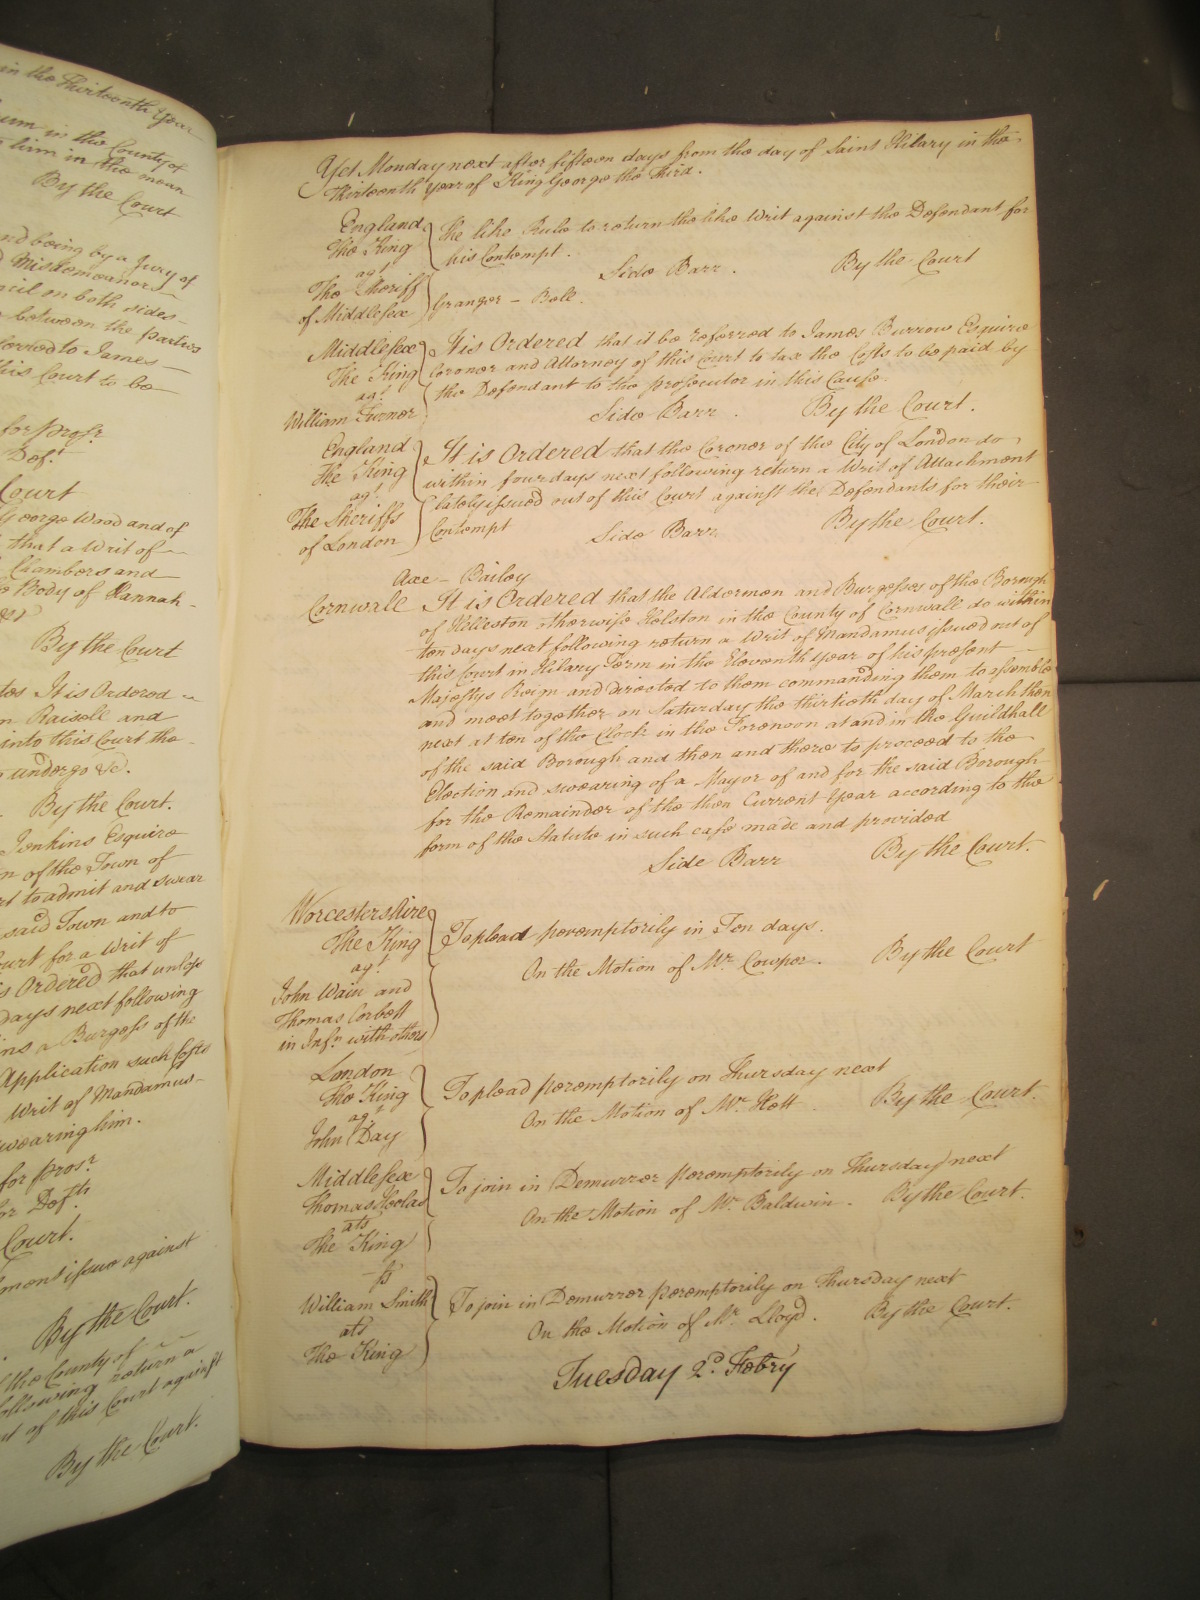 in the Thirteenth Year
in the County of
him in the mean
By the Court
and being by a Jury of
Misdemeanors
on both sides
between the parties
to James
this Court to be
for Prosr.
Deft.
Court
George Wood and of
that a Writ of
Chambers and
Body of Hannah
By the Court
It is Ordered
Raisell and
into this Court the
undergo &c.
By the Court.
Jenkins Esquire
of the Town of
to admit and swear
said Town and to
Court for a Writ of
is Ordered that unless
days next following
a Burgess of the
Application such Costs
Writ of Mandamus
swearing him.
for Prosr.
for Defts.
Court.
issue against
By the Court.
the County of
following return a
of this Court against
By the Court.
Yet Monday next after fifteen days from the day of Saint Hilary in the
Thirteenth Year of King George the Third.
England
The King
agt.
The Sheriff
of Middlesex
The like Rule to return the like Writ against the Defendant for
his Contempt.
Side Barr. By the Court
Granger - Bell.
Middlesex
The King
agt.
William Turner
It is Ordered that it be referred to James Burrow Esquire
Coroner and Attorney of this Court to tax the Costs to be paid by
the Defendant to the prosecutor in this Cause.
Side Barr. By the Court.
England
The King
agt.
The Sheriffs
of London
It is Ordered that the Coroner of the City of London do
within four days next following return a Writ of Attachment
lately issued out of this Court against the Defendants for their
Contempt Side Barr. By the Court.
Axe - Bailey
Cornwall It is Ordered that the Aldermen and Burgesses of the Borough
of Helleston otherwise Helston in the County of Cornwall do within
ten days next following return a Writ of Mandamus issued out of
this Court in Hilary Term in the Eleventh Year of his present
Majestys Reign and directed to them commanding them to assemble
and meet together on Saturday the thirtieth day of March then
next at ten of the Clock in the Forenoon at and in the Guildhall
of the said Borough and then and there to proceed to the
Election and swearing of a Mayor of and for the said Borough
for the Remainder of the then Current Year according to the
form of the Statute in such case made and provided
Side Barr By the Court.
Worcestershire
The King
agt.
John Wain and
Thomas Corbett
in Infn. with others
To plead peremptorily in Ten days.
On the Motion of Mr. Cowper. By the Court
London
The King
agt.
John Day
To plead peremptorily on Thursday next
On the Motion of Mr. Hett By the Court.
Middlesex
Thomas
ats
The King
To join in Demurrer peremptorily on Thursday next
On the Motion of Mr. Baldwin. By the Court.
William Smith
ats
The King
To join in Demurrer peremptorily on Thursday next
On the Motion of Mr. Lloyd. By the Court.
Tuesday 2d. Febry